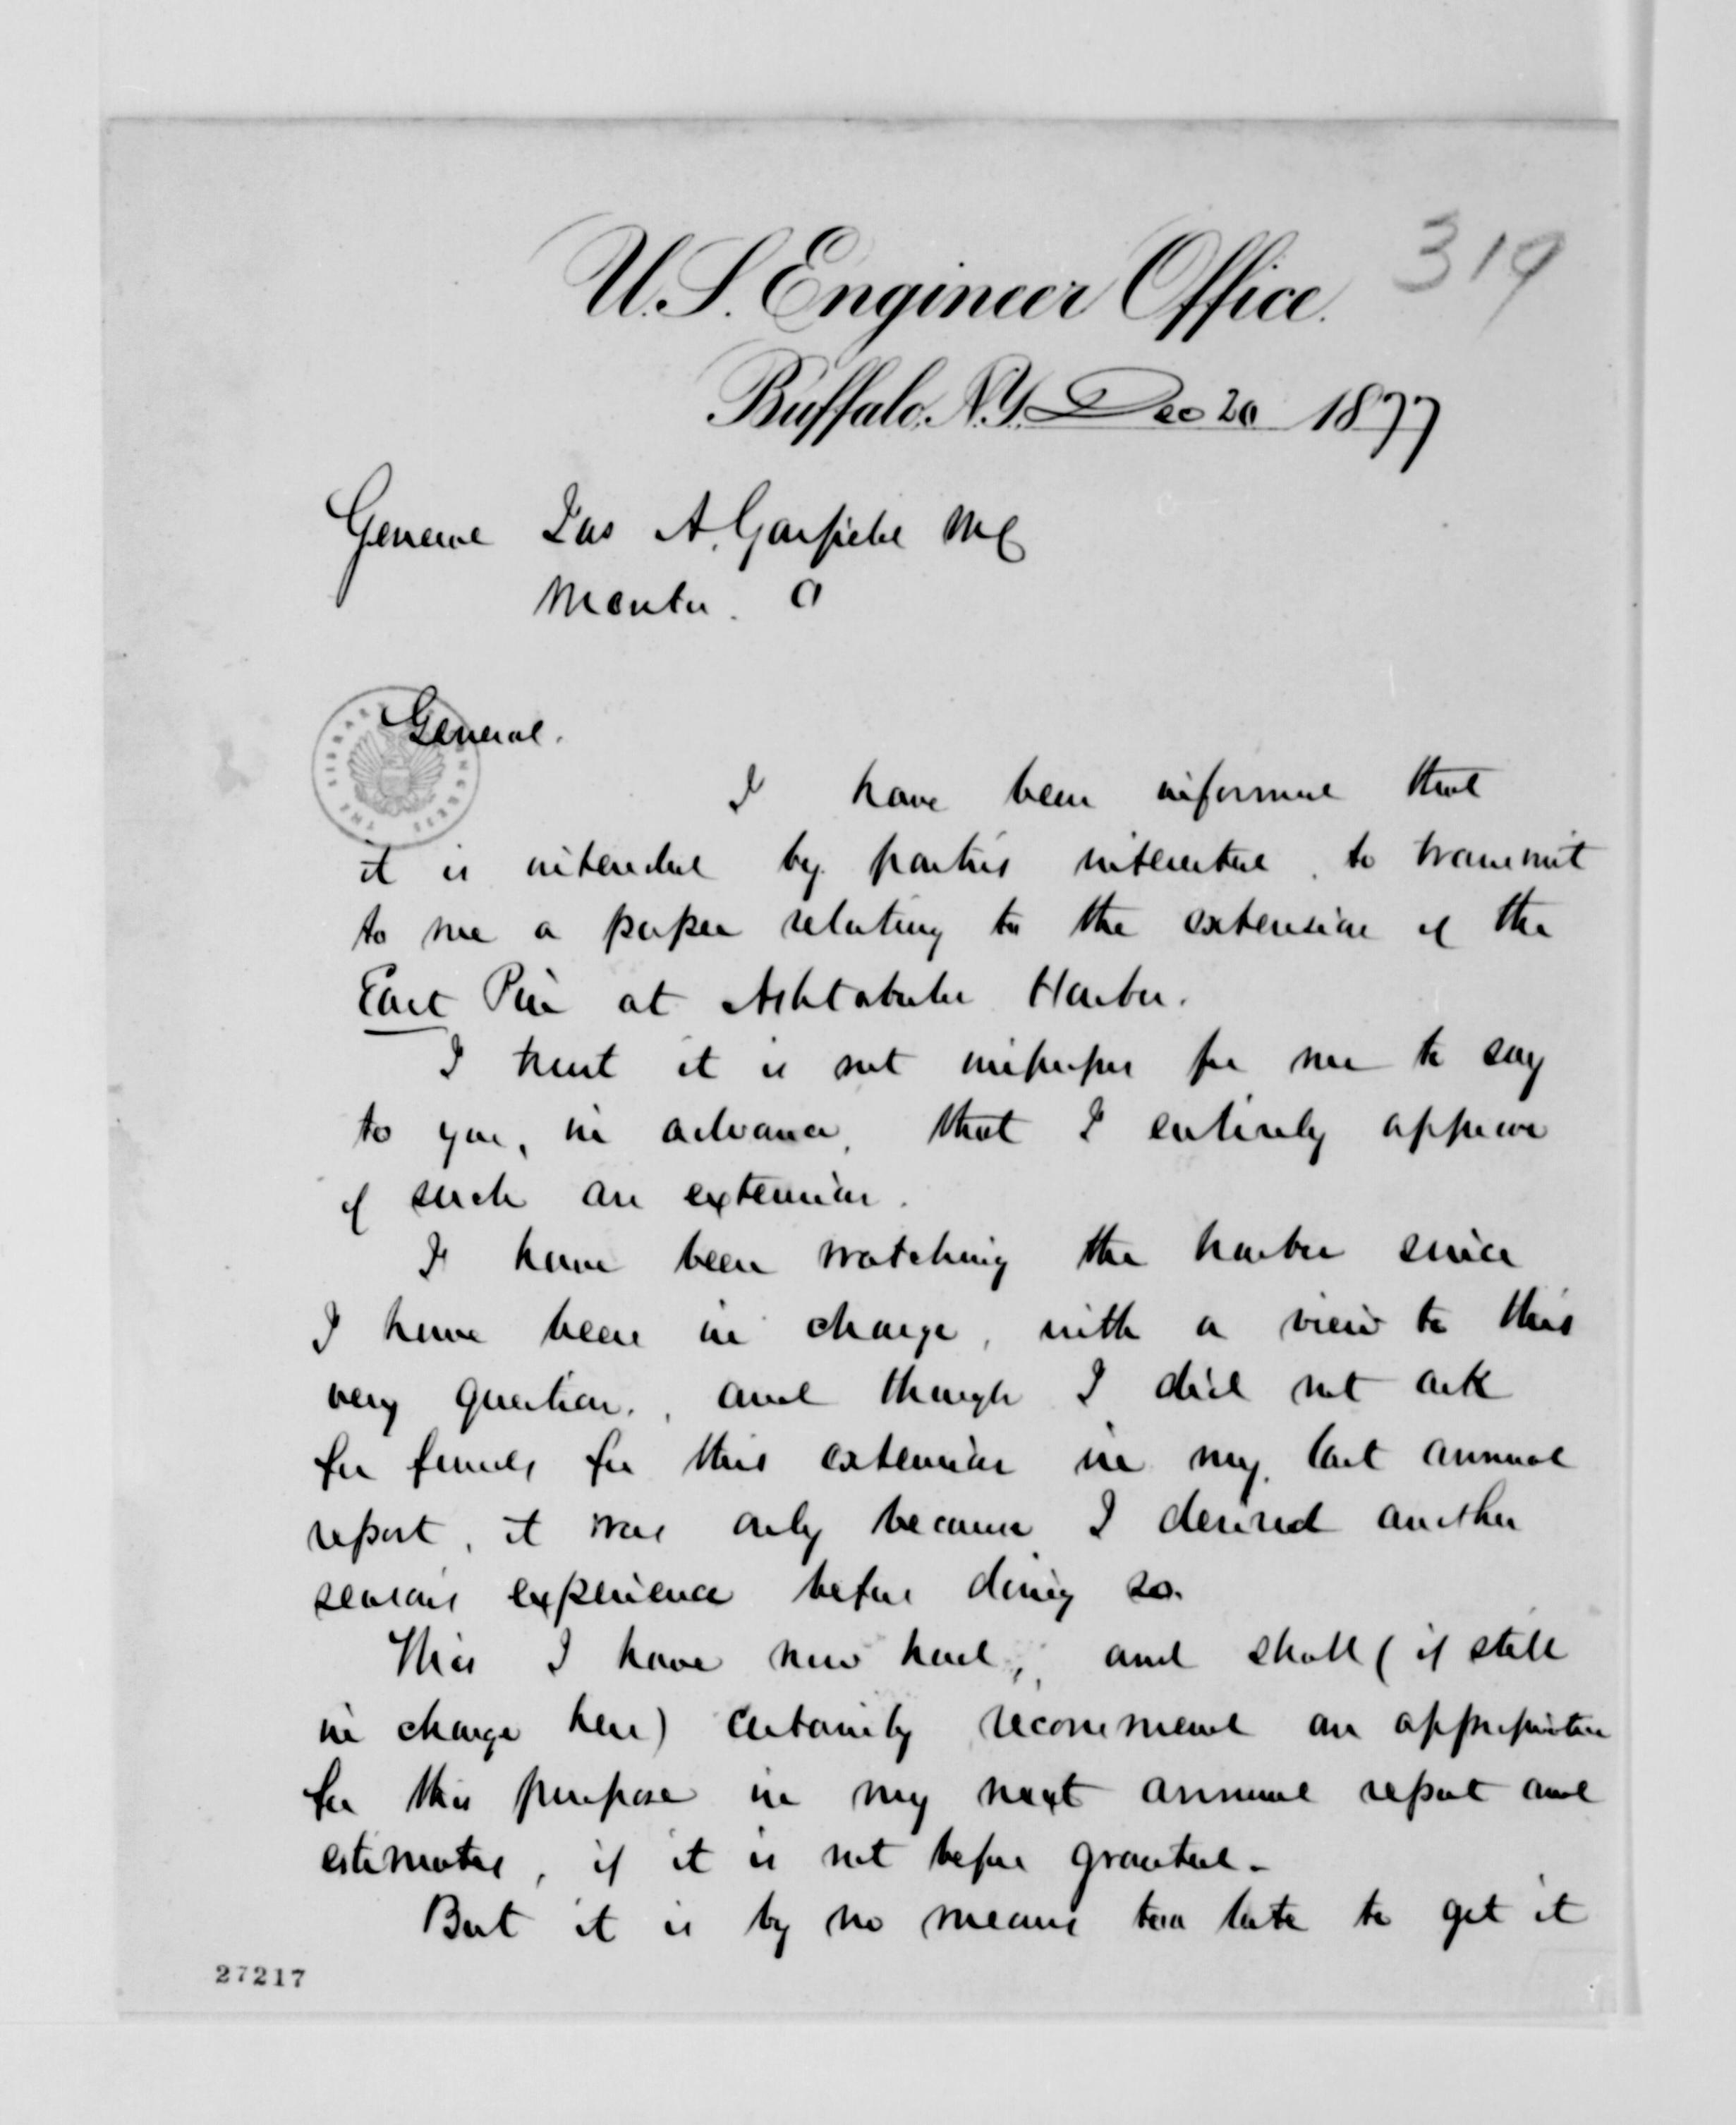 319
U.S. Engineer Office.
Buffalo, N.Y. Dec 20 1877
General Jas A. Garfield MC
Mentor. O
General.
I have been informed that
it is intended by parties interested, to transmit
to me a paper relating to the extension of the
East Pier at Ashtabula Harbor.
I trust it is not improper for me to say
to you, in advance, that I entirely approve
of such an extension.
I have been watching the harbor since
I have been in charge, with a view to this
very question, and though I did not ask
for funds for this extension in my last annual
report, it was only because I desired another
seasons experience before doing so.
This I have now had, and shall (if still
in charge here) certainly recommend an appropriation
for this purpose in my next annual report and
estimates, if it is not before granted -
But it is by no means too late to get it
27217